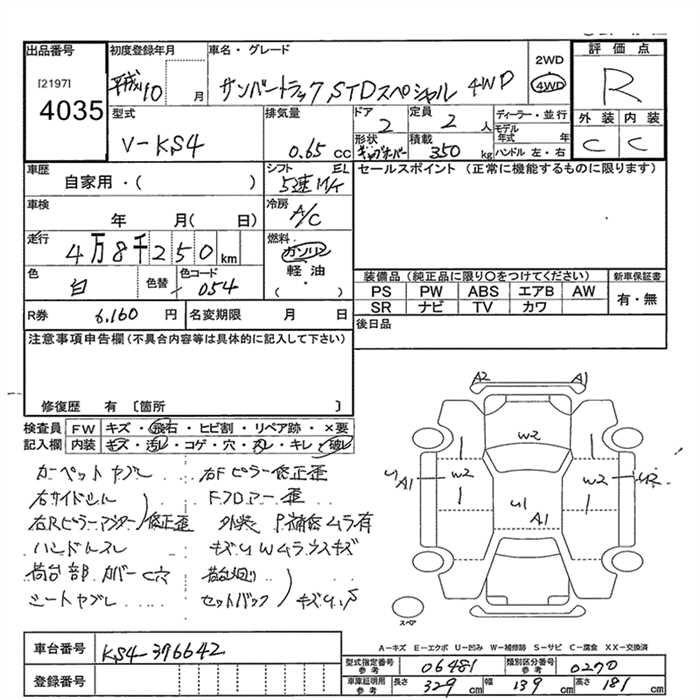 出品番号
[2197]
4035
初度登録年月
平成10 月
車名・グレード
サンバートラック STDスペシャル 4WD
2WD
4WD
評価点
R
外装 内装
C C
型式
V-KS4
排気量
0.65 cc
ドア
2
定員
2 人
形状
積載
350 kg
ディーラー・並行
モデル年式 年
ハンドル 左・右
車歴
自家用・( )
シフト EL
5速 M/T
セールスポイント (正常に機能するものに限ります)
車検
年 月( 日)
冷房
A/C
走行
4万8千250 km
燃料
ガソリン
軽油
・
( )
色
白
色替
色コード
054
装備品 (純正品に限り○をつけてください)
新車保証書
PS PW ABS エアB AW
SR ナビ TV カワ
有・無
R券 6,160 円
名変期限 月 日
後日品
注意事項申告欄(不具合内容等は具体的に記入して下さい)
修復歴 有 〔箇所 〕
検査員記入欄
FW キズ・飛石・ヒビ割・リペア跡・×要
内装 キズ・汚レ・コゲ・穴・スレ・キレ・破レ
カーペットヤブレ
右Fピラー修正歪
右サイドシル
Fフロアー歪
右Rピラーアウター 修正歪
外装 P補修ムラ有
ハンドルスレ
キズU Wムラウスキズ
荷台部 カバーC穴
荷台廻り
シートヤブレ
セットバック キズU.S
A2 A1
W2
U A1 W2
W2 U2
U1
A1
スペア
A-キズ E-エクボ U-凹み W-補修跡 S-サビ C-腐食 XX-交換済
車台番号 KS4-376642
登録番号
型式指定番号 参考 06481
類別区分番号 参考 0270
車庫証明用 参考 長さ 329 cm 幅 139 cm 高さ 181 cm